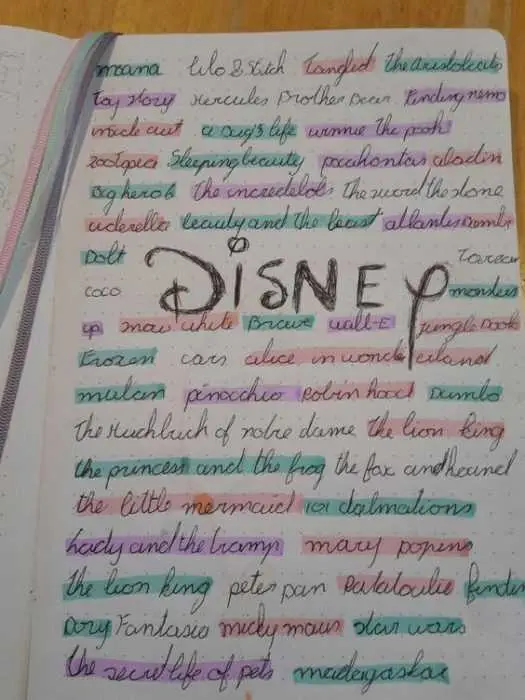 moana lilo & stitch Tangled the aristokcats
Toy story Hercules Brother Bear finding nemo
inside out a bug's life winnie the pooh
zootopia Sleeping beauty pocahontas aladin
Big hero 6 The incredebols The sword the stone
ciderella beauty and the beast atlantis Bambi
Bolt Tarzan
coco DISNEY monsters
up snow white Brave wall-E jungle book
Frozen cars alice in wonderland
mulan pinocchio Robin hood Dumbo
The Huchbuch of notre dame the lion king
the princess and the frog the fox and hound
the little mermaid 101 dalmations
Lady and the tramp mary popens
the lion king peter pan Ratatoulie finding
Dory Fantasia micky maus star wars
the secret life of pets madagaskar